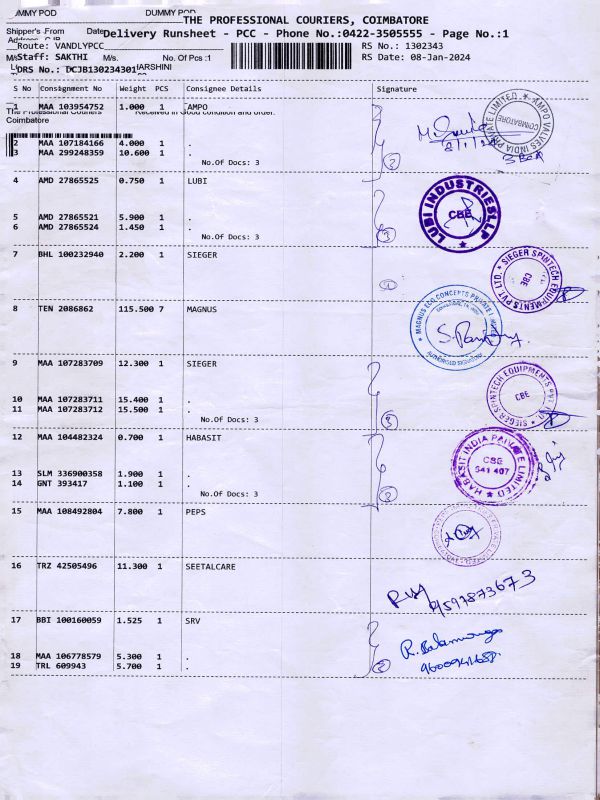 DUMMY POD DUMMY POD
THE PROFESSIONAL COURIERS, COIMBATORE
Shipper's From Date
Delivery Runsheet - PCC - Phone No.:0422-3505555 - Page No.:1
Route: VANDLYPCC RS No.: 1302343
M/s Staff: SAKTHI M/s. No. Of Pcs :1 RS Date: 08-Jan-2024
DRS No.: DCJB130234301 HARSHINI
S No Consignment No Weight PCS Consignee Details Signature
1 MAA 103954752 1.000 1 AMPO
The Professional Couriers Received in Good condition and order.
Coimbatore
2 MAA 107184166 4.000 1 .
3 MAA 299248359 10.600 1 .
No.Of Docs: 3
4 AMD 27865525 0.750 1 LUBI
5 AMD 27865521 5.900 1 .
6 AMD 27865524 1.450 1 .
No.Of Docs: 3
7 BHL 100232940 2.200 1 SIEGER
8 TEN 2086862 115.500 7 MAGNUS
9 MAA 107283709 12.300 1 SIEGER
10 MAA 107283711 15.400 1 .
11 MAA 107283712 15.500 1 .
No.Of Docs: 3
12 MAA 104482324 0.700 1 HABASIT
13 SLM 336900358 1.900 1 .
14 GNT 393417 1.100 1 .
No.Of Docs: 3
15 MAA 108492804 7.800 1 PEPS
16 TRZ 42505496 11.300 1 SEETALCARE
17 BBI 100160059 1.525 1 SRV
18 MAA 106778579 5.300 1 .
19 TRL 609943 5.700 1 .
AMPO VALVES INDIA PRIVATE LIMITED
COIMBATORE
3 Box
LUBI INDUSTRIES LLP
CBE
SIEGER SPINTECH EQUIPMENTS PVT. LTD.
CBE
MAGNUS ECO CONCEPTS PRIVATE LIMITED
AUTHORISED SIGNATORY
SIEGER SPINTECH EQUIPMENTS PVT. LTD.
CBE
HABASIT INDIA PRIVATE LIMITED
CBE
641 407